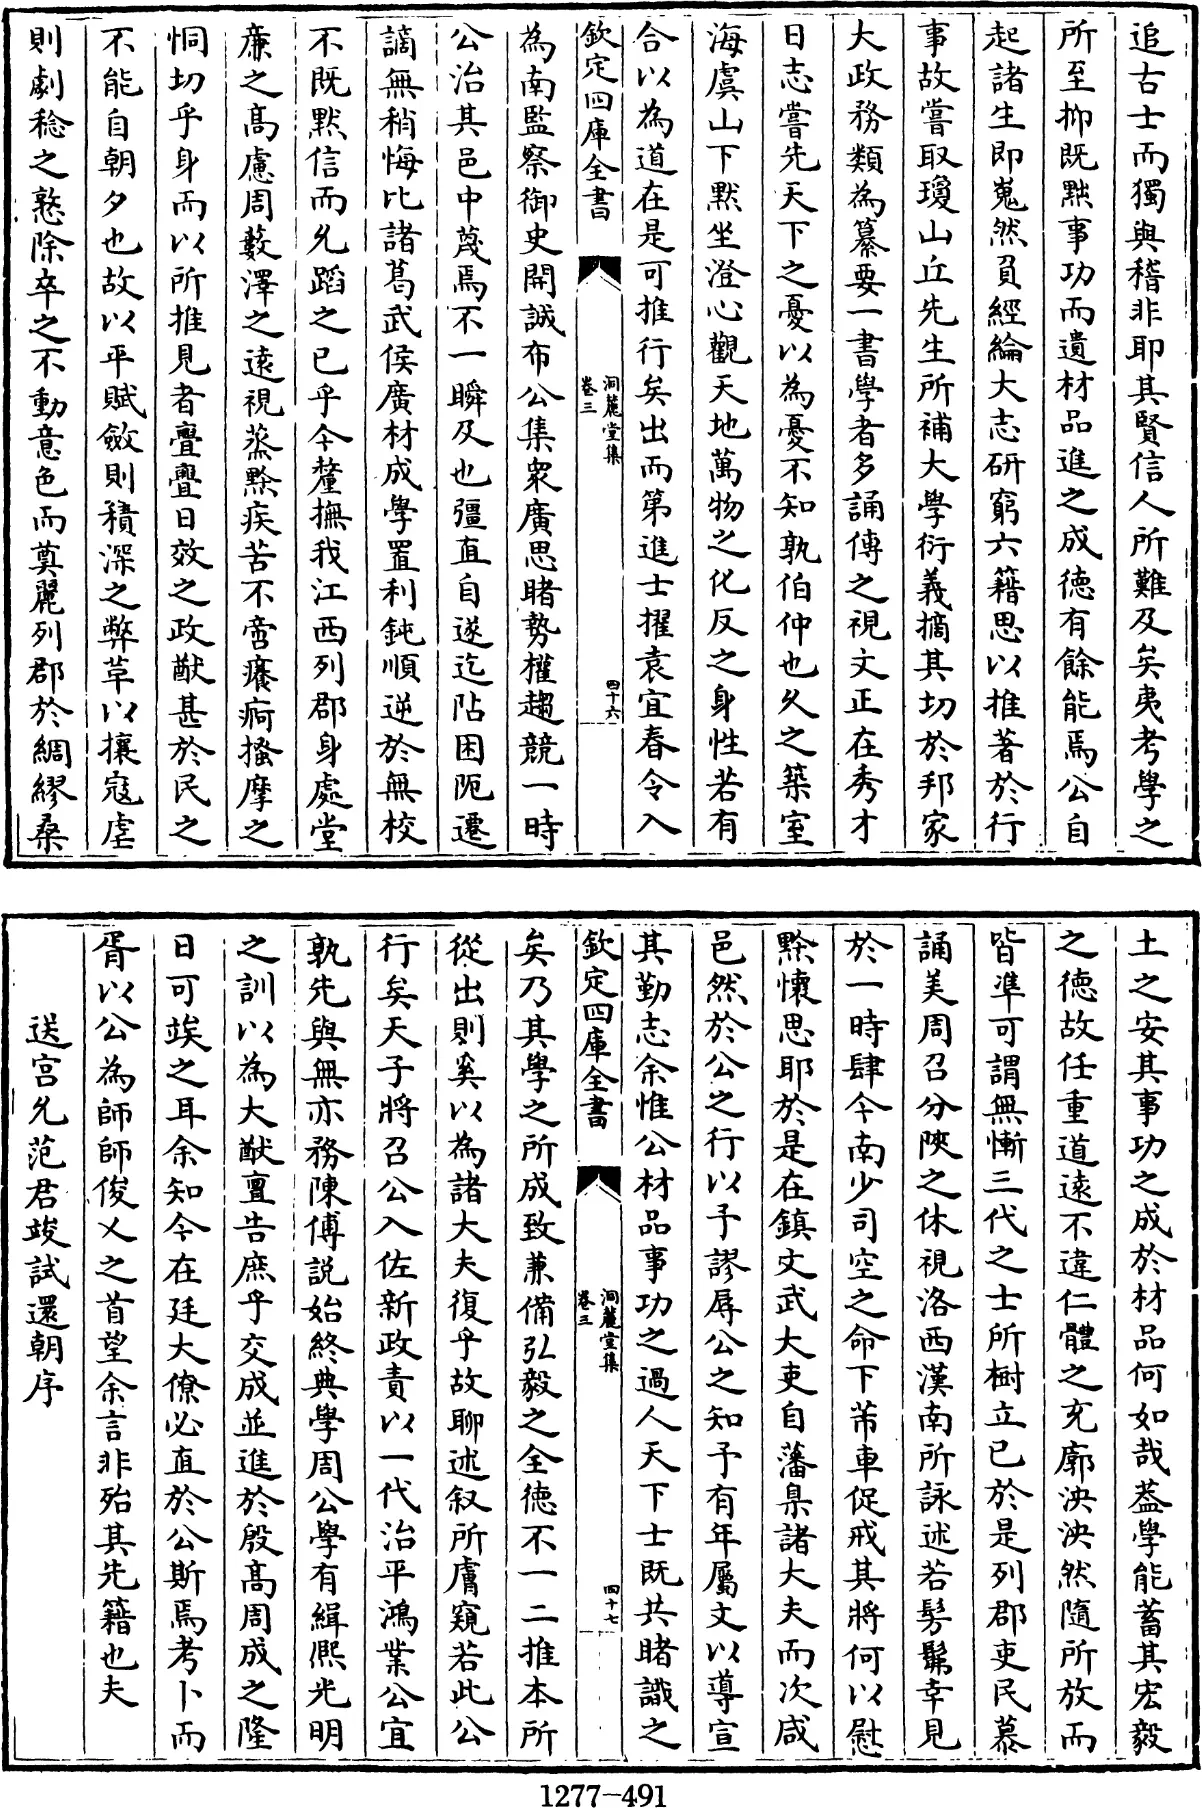 追古士而獨與稽非耶其賢信人所難及矣夷考學之
所至抑既黙事功而遺材品進之成德有餘能焉公自
起諸生即嵬然負經綸大志研窮六籍思以推著於行
事故嘗取瓊山丘先生所補大學衍義摘其切於邦家
大政務類為纂要一書學者多誦傳之視文正在秀才
日志嘗先天下之憂以為憂不知孰伯仲也久之築室
海虞山下默坐澄心觀天地萬物之化反之身性若有
合以為道在是可推行矣出而第進士擢袁宜春令入
欽定四庫全書
洞麓堂集
卷三
四十六
為南監察御史開誠布公集衆廣思睹勢權趨競一時
公治其邑中蔑焉不一瞬及也彊直自遂迄阽困阨遷
謫無稍悔比諸葛武侯廣材成學置利鈍順逆於無校
不既黙信而允蹈之已乎今釐撫我江西列郡身處堂
亷之髙慮周藪澤之遠視蒸黎疾苦不啻癢痾搔摩之
恫切乎身而以所推見者亹亹日效之政猷甚於民之
不能自朝夕也故以平賦斂則積深之弊草以攘寇虐
則劇稔之憝除卒之不動意色而奠麗列郡於綢繆桑
土之安其事功之成於材品何如哉葢學能蓄其宏毅
之德故任重道逺不違仁體之充廓泱泱然隨所放而
皆凖可謂無慚三代之士所樹立已於是列郡吏民慕
誦美周召分陜之休視洛西漢南所詠述若髣髴幸見
於一時肆今南少司空之命下芾車促戒其將何以慰
黎懐思耶於是在鎮文武大吏自藩臬諸大夫而次咸
邑然於公之行以予謬辱公之知予有年屬文以導宣
其勤志余惟公材品事功之過人天下士既共睹識之
欽定四庫全書
洞麓堂集
卷三
四十七
矣乃其學之所成致兼備弘毅之全德不一二推本所
從出則奚以為諸大夫復乎故聊述叙所膚窺若此公
行矣天子將召公入佐新政責以一代治平鴻業公宜
孰先與無亦務陳傅説始終典學周公學有緝熙光明
之訓以為大猷亶告庶乎交成並進於殷髙周成之隆
日可竢之耳余知今在廷大僚必直於公斯焉考卜而
胥以公為師師俊乂之首望余言非殆其先籍也夫
送宫允范君竣試還朝序
1277-491